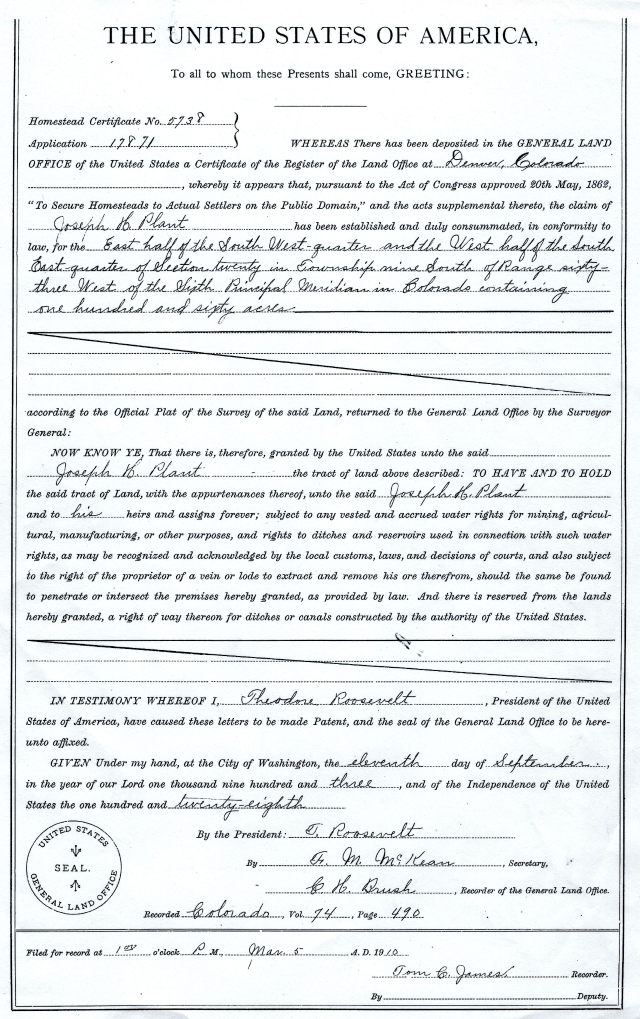 THE UNITED STATES OF AMERICA,
To all to whom these Presents shall come, GREETING:
Homestead Certificate No. 5738
Application 17871
WHEREAS There has been deposited in the GENERAL LAND
OFFICE of the United States a Certificate of the Register of the Land Office at Denver, Colorado
, whereby it appears that, pursuant to the Act of Congress approved 20th May, 1862,
"To Secure Homesteads to Actual Settlers on the Public Domain," and the acts supplemental thereto, the claim of
Joseph H. Plant has been established and duly consummated, in conformity to
law, for the East half of the South West quarter and the West half of the South
East quarter of Section twenty in Township nine South of Range sixty-
three West of the Sixth Principal Meridian in Colorado containing
one hundred and sixty acres
according to the Official Plat of the Survey of the said Land, returned to the General Land Office by the Surveyor
General:
NOW KNOW YE, That there is, therefore, granted by the United States unto the said
Joseph H. Plant - the tract of land above described: TO HAVE AND TO HOLD
the said tract of Land, with the appurtenances thereof, unto the said Joseph H. Plant
and to his heirs and assigns forever; subject to any vested and accrued water rights for mining, agricul-
tural, manufacturing, or other purposes, and rights to ditches and reservoirs used in connection with such water
rights, as may be recognized and acknowledged by the local customs, laws, and decisions of courts, and also subject
to the right of the proprietor of a vein or lode to extract and remove his ore therefrom, should the same be found
to penetrate or intersect the premises hereby granted, as provided by law. And there is reserved from the lands
hereby granted, a right of way thereon for ditches or canals constructed by the authority of the United States.
IN TESTIMONY WHEREOF I, Theodore Roosevelt, President of the United
States of America, have caused these letters to be made Patent, and the seal of the General Land Office to be here-
unto affixed.
GIVEN Under my hand, at the City of Washington, the eleventh day of September,
in the year of our Lord one thousand nine hundred and three, and of the Independence of the United
States the one hundred and twenty-eighth
By the President: T. Roosevelt
By F. M. McKean, Secretary,
C. H. Brush, Recorder of the General Land Office.
UNITED STATES
SEAL.
GENERAL LAND OFFICE
Recorded Colorado, Vol. 74, Page 490
Filed for record at 1 o'clock P. M., Mar. 5 A. D. 1910
Tom C. James. Recorder.
By Deputy.